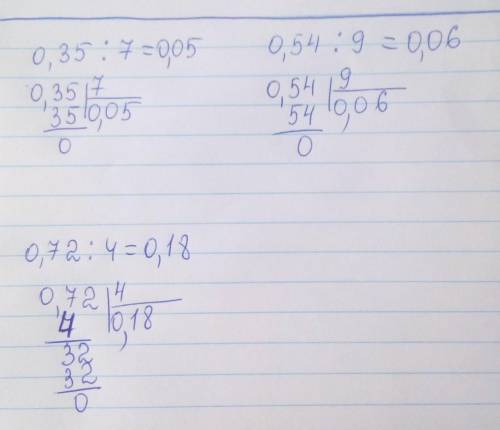 0,35 : 7 = 0,05
0,35 7
35 0,05
0
0,54 : 9 = 0,06
0,54 9
54 0,06
0
0,72 : 4 = 0,18
0,72 4
4 0,18
32
32
0